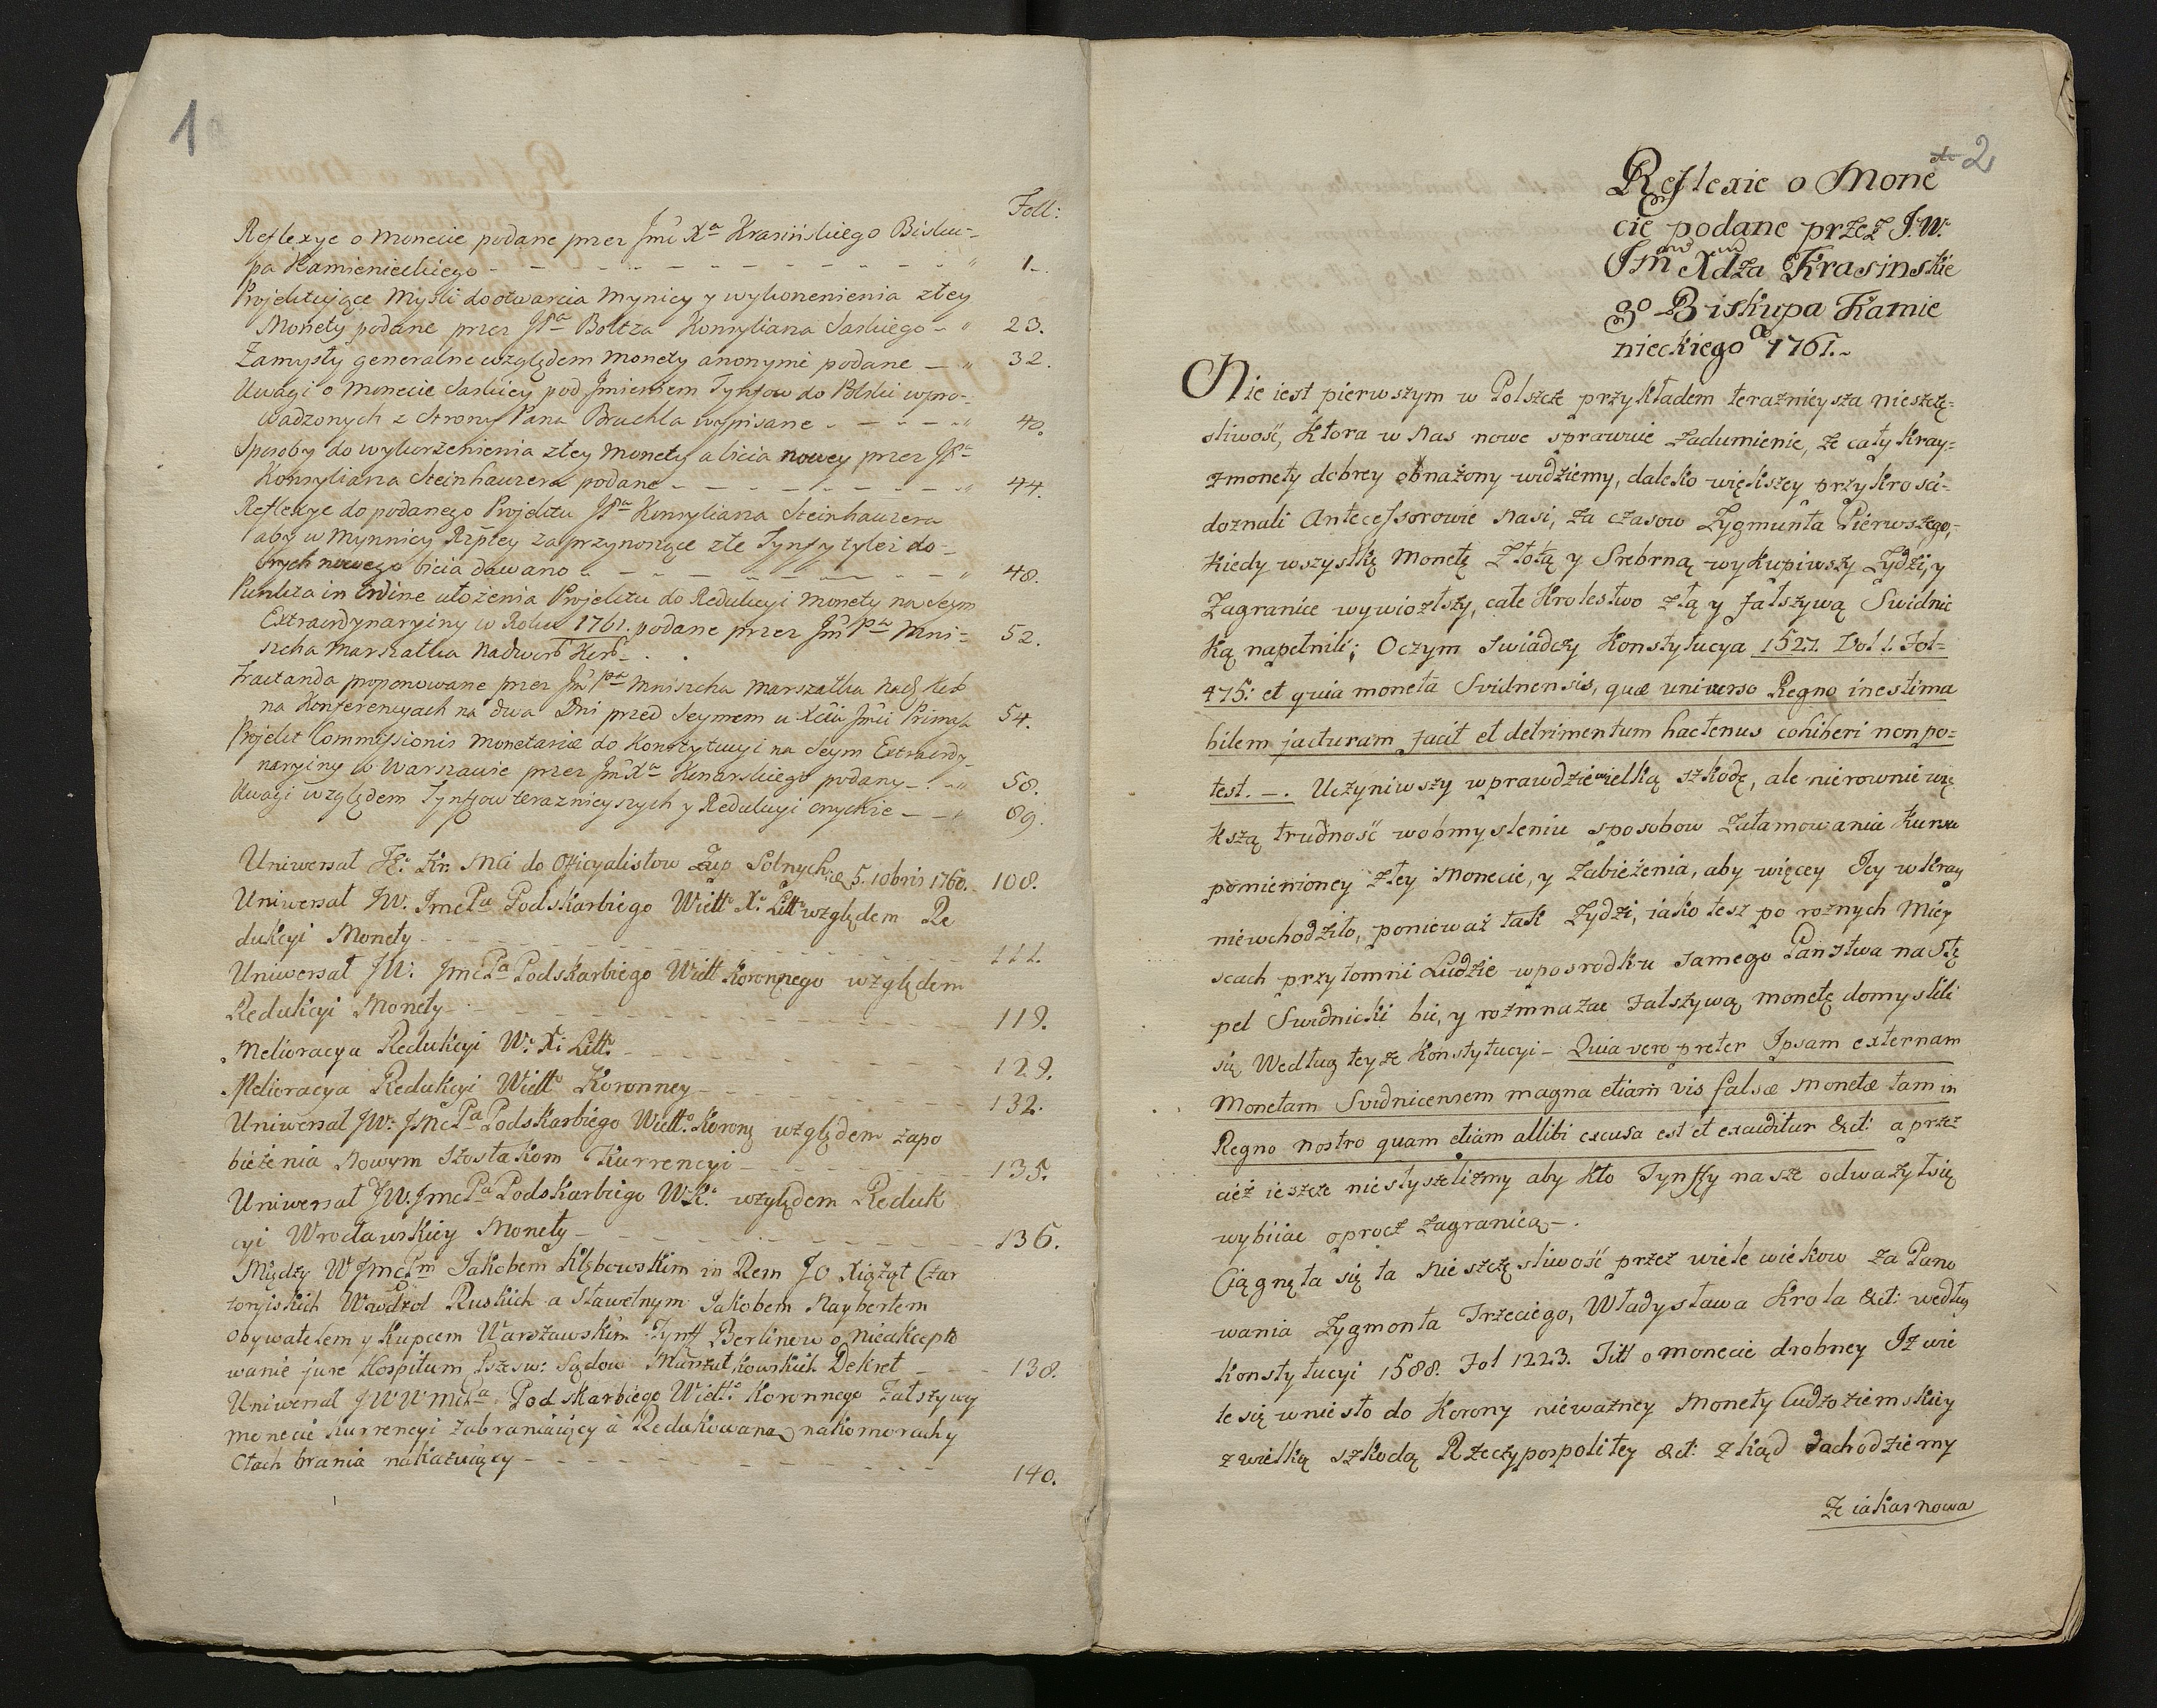 1
Foll:
Reflexye o monecie podane przez Jmci Xa Krasińskiego Bisku-
pa Kamienieckiego - - - - - - - - - 1.
Projektujące Myśli do otwarcia Mynicy y wykorzenienia złey
Monety podane przez JPa Boltza Konsyliarza Saskiego - 23.
Zamysły generalne względem Monety anonymi podane - 32.
Uwagi o Monecie Saskiey pod Jmieniem Tynfow do Polski wpro-
wadzonych z Strony Pana Bruchla wypisane - - - 40.
Sposoby do wykorzenienia złey Monety a bicia nowey przez JPa
Konsyliarza Steinhauzera podane - - - - - - 44.
Reflexye do podanego Projektu JPa Konsyliarza Steinhauzera
aby w Mynnicy Rzpltey za przynoszące złe Tynfy tyleż do-
brych nowego bicia dawano - - - - - - - 48.
Punkta in Ordine ułożenia Projektu do Redukcyi Monety na Seym
Extraordynaryiny w Roku 1761. podane przez Jmć Pa Mni- 52.
szcha Marszałka Nadwor Kor -
Tractanda proponowane przez Jm Pa Mniszcha Marszałka Nad Kor
na Konferencyach na dwa Dni przed Seymem u Xcia Jmci Primasa 54.
Projekt Commissionis Monetariæ do Konstytucyi na Seym Extraordy-
naryiny w Warszawie przez Jm Xa Konarskiego podany - 58.
Uwagi względem Tynfow teraznieyszych y Redukcyi onychże - - 89.
Uniwersał JK. Kr. Mci do Oficyalistow Żup Solnych, de 5. 10bris 1760. 108.
Uniwersał JW. Jmc Pa Podskarbiego Wielk X. Litt względem Re
dukcyi Monety - - - - - - - - - 111.
Uniwersał JW. Jmc Pa Podskarbiego Wielk Koronnego względem
Redukcyi Monety - - - - - - - - 119.
Melioracya Redukcyi W. X. Litt. - - - - - - 129.
Melioracya Redukcyi Wielk Koronney - - - - - 132.
Uniwersał JW. Jmc Pa Podskarbiego Wielk. Koron względem zapo
bieżenia Nowym Szostakom Kurrencyi - - - - - 135.
Uniwersał JW. Jmc Pa Podskarbiego W.K. względem Reduk
cyi Wrocławskiey Monety - - - - - - - 136.
Między W Jmc Pm Jakobem Kłębowskim in Rem JO Xiążąt Czar
toryiskich Wwdzow Ruskich a Sławetnym Jakobem Naybertem
Obywatelem y Kupcem Warszawskim Tynff Berlinow o nieakcepto
wanie jure Hospitum Przesw: Sądow Marszałkowskich Dekret - - 138.
Uniwersał JWWmc Pa Podskarbiego Wielk. Koronnego Fałszywey
monecie Kurrencyi zabraniaiący a Redukowaną na komorach y
Cłach brania nakazuiący - - - - - - - 140.
2
Reflexie o Mone
cie podane przez J.W.
Jmci Xdza Krasinskie
go Biskupa Kamie
nieckiego 1761.
Nie iest pierwszym w Polszcze przykładem teraźnieysza nieszczę-
sliwość, Ktora w Nas nowe sprawuie zadumienie, że cały Kray-
z monety dobrey obnażony widziemy, daleko większey przykrosci-
doznali Antecessorowie Nasi, za czasow Zygmunta Pierwszego,-
Kiedy wszystkę Monetę Złotą y Srebrną wykupiwszy Zydzi, y
Zagranice wywiozłszy, całe Krolestwo złą y fałszywą Swidnic
Ką napełnili; Oczym swiadczy Konstytucya 1527. Vol 1. Fol-
475: et quia moneta Svidnensis, quæ universo Regno inestima
bilem jacturam facit et detrimentum hactenus cohiberi non po=
test. -. Uczyniwszy wprawdzie wielką szkodę, ale nierownie wię
kszą trudność wobmysleniu sposobow zatamowania Kursu
pomienioney złey Monecie, y zabieżenia, aby więcey Jey w Kray
niewchodziło, ponieważ tak Zydzi, iako tesz po rożnych Miey
scach przytomni Ludzie wposrodku samego Panstwa na Stę
pel Swidnicki bic, y rozmnażac Fałszywą monetę domyslili
się Według teyże Konstytucyi - Quia vero preter Ipsam externam
Monetam Svidnicensem magna etiam vis falsæ Monetæ tam in
Regno nostro quam etiam allibi excusa est et exuditur &ct: a przez
cież ieszcze niesłyszeliżmy aby kto Tynffy nasze odważył się
wybiiac oprocz zagranicą -.
Ciągnęła się ta nieszczęsliwość przez wiele wiekow za Pano
wania Zygmonta Trzeciego, Władysława Krola &ct: według
Konstytucyi 1588. Fol 1223. Titt o monecie drobney Iż wie
le się wniesło do Korony nieważney Monety Cudzoziemskiey
z wielką szkodą Rzeczypospolitey &ct: zkąd dachodziemy
Że iakasnowa